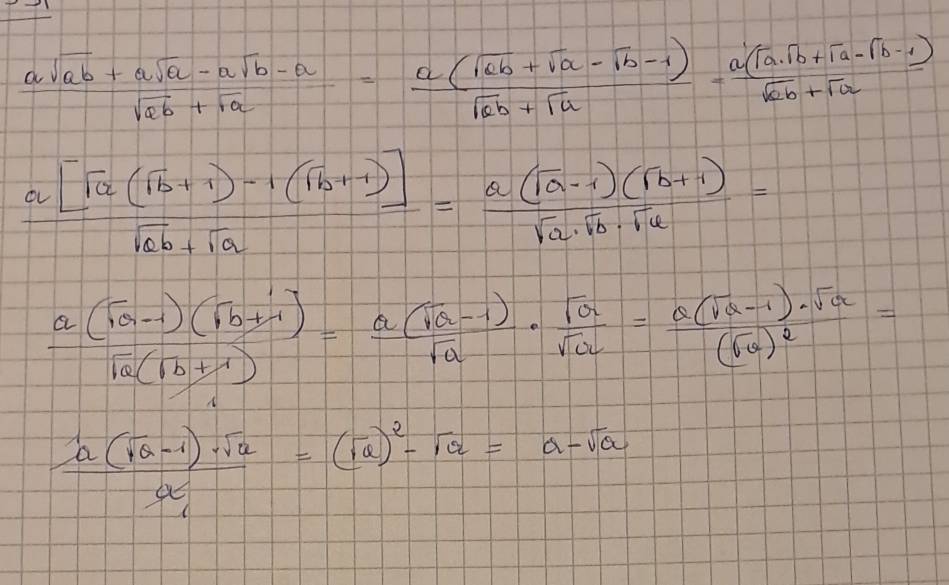 (a√ab + a√a - a√b - a)/(√ab + √a) = a(√ab + √a - √b - 1)/(√ab + √a) = a(√a·√b + √a - √b - 1)/(√ab + √a)
a[√a(√b + 1) - 1(√b + 1)]/(√ab + √a) = a(√a - 1)(√b + 1)/(√a·√b·√a) =
a(√a - 1)(√b + 1)/(√a(√b + 1)) = a(√a - 1)/√a · √a/√a = a(√a - 1)·√a/(√a)² =
a(√a - 1)·√a/a = (√a)² - √a = a - √a